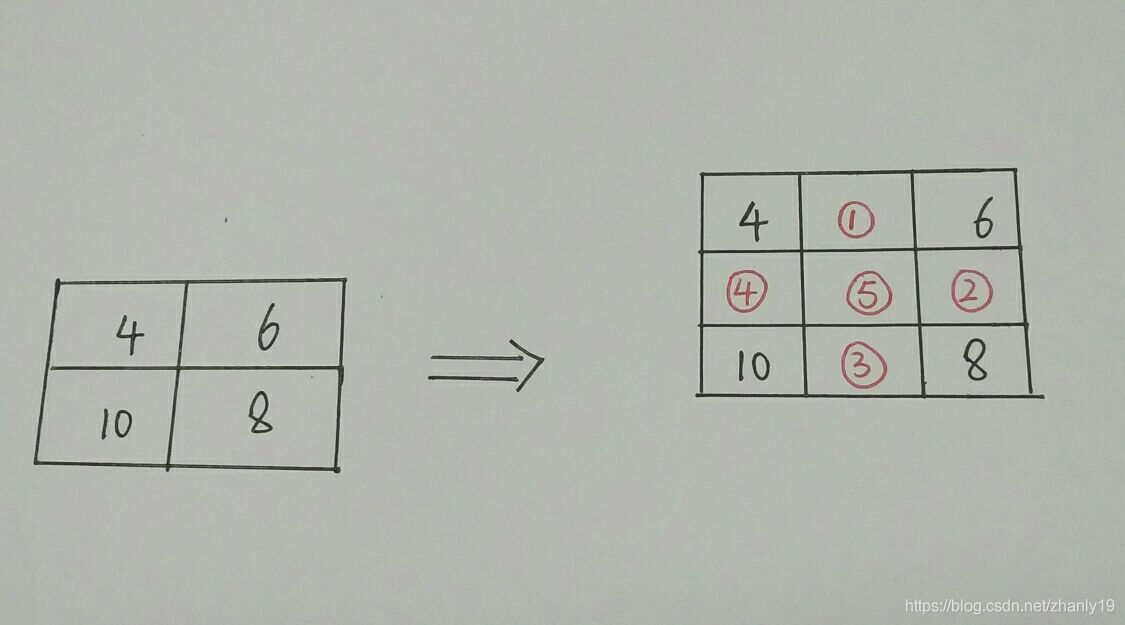 4 6
10 8
4 ① 6
④ ⑤ ②
10 ③ 8
https://blog.csdn.net/zhanly19